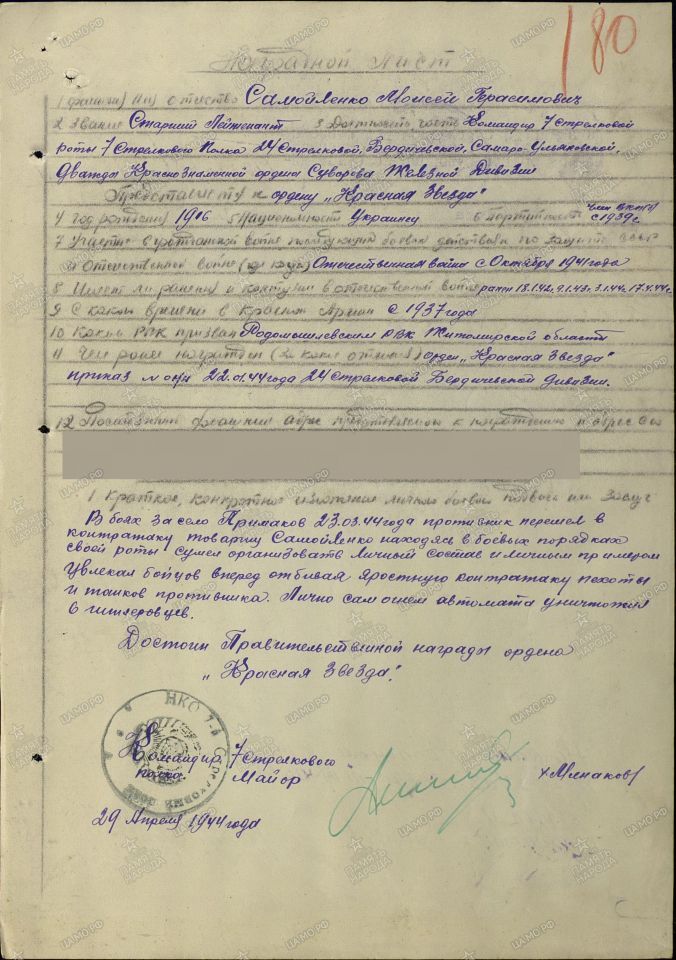 180
Наградной Лист
1 фамилия Имя отчество Самойленко Моисей Герасимович
2 Звание Старший Лейтенант 3 Должность, часть Командир 7 Стрелковой
роты 7 Стрелкового Полка 24 Стрелковой, Бердичевской, Самаро-Ульяновской,
Дважды Краснознаменной ордена Суворова Железной Дивизии
Представляется к ордену „Красная Звезда"
4 год рождения 1906 5 Национальность Украинец 6 Партийность член ВКП(б)
с 1939 г
7 Участие в гражданской войне последующих боевых действиях по защите СССР
и Отечественной войне (где когда) Отечественная война с Октября 1941 года
8 Имеет ли ранения и контузии в отечественной войне ранен 18.1.42, 9.1.43, 3.1.44, 17.4.44 г.
9 С какого времени в Красной Армии с 1937 года
10 Каким РВК призван Радомышлевским РВК Житомирской области
11 Чем ранее награжден (за какие отличия) орден „Красная Звезда"
приказ 22.01.44 года 24 Стрелковой Бердичевской дивизии.
12 Постоянный домашний адрес представляемого к награждению и адрес его
1 Краткое, конкретное изложение личного боевого подвига или заслуг
В боях за село Примаков 23.03.44 года противник перешел в
контратаку товарищ Самойленко находясь в боевых порядках
своей роты сумел организовать личный состав и личным примером
увлекал бойцов вперед отбивая яростную контратаку пехоты
и танков противника. Лично сам огнем автомата уничтожил
6 гитлеровцев.
Достоин Правительственной награды ордена
„Красная Звезда".
НКО 7-й Стрелковый полк
Командир 7 Стрелкового
полка Майор
29 Апреля 1944 года
ЦАМО.РФ
ПАМЯТЬ НАРОДА